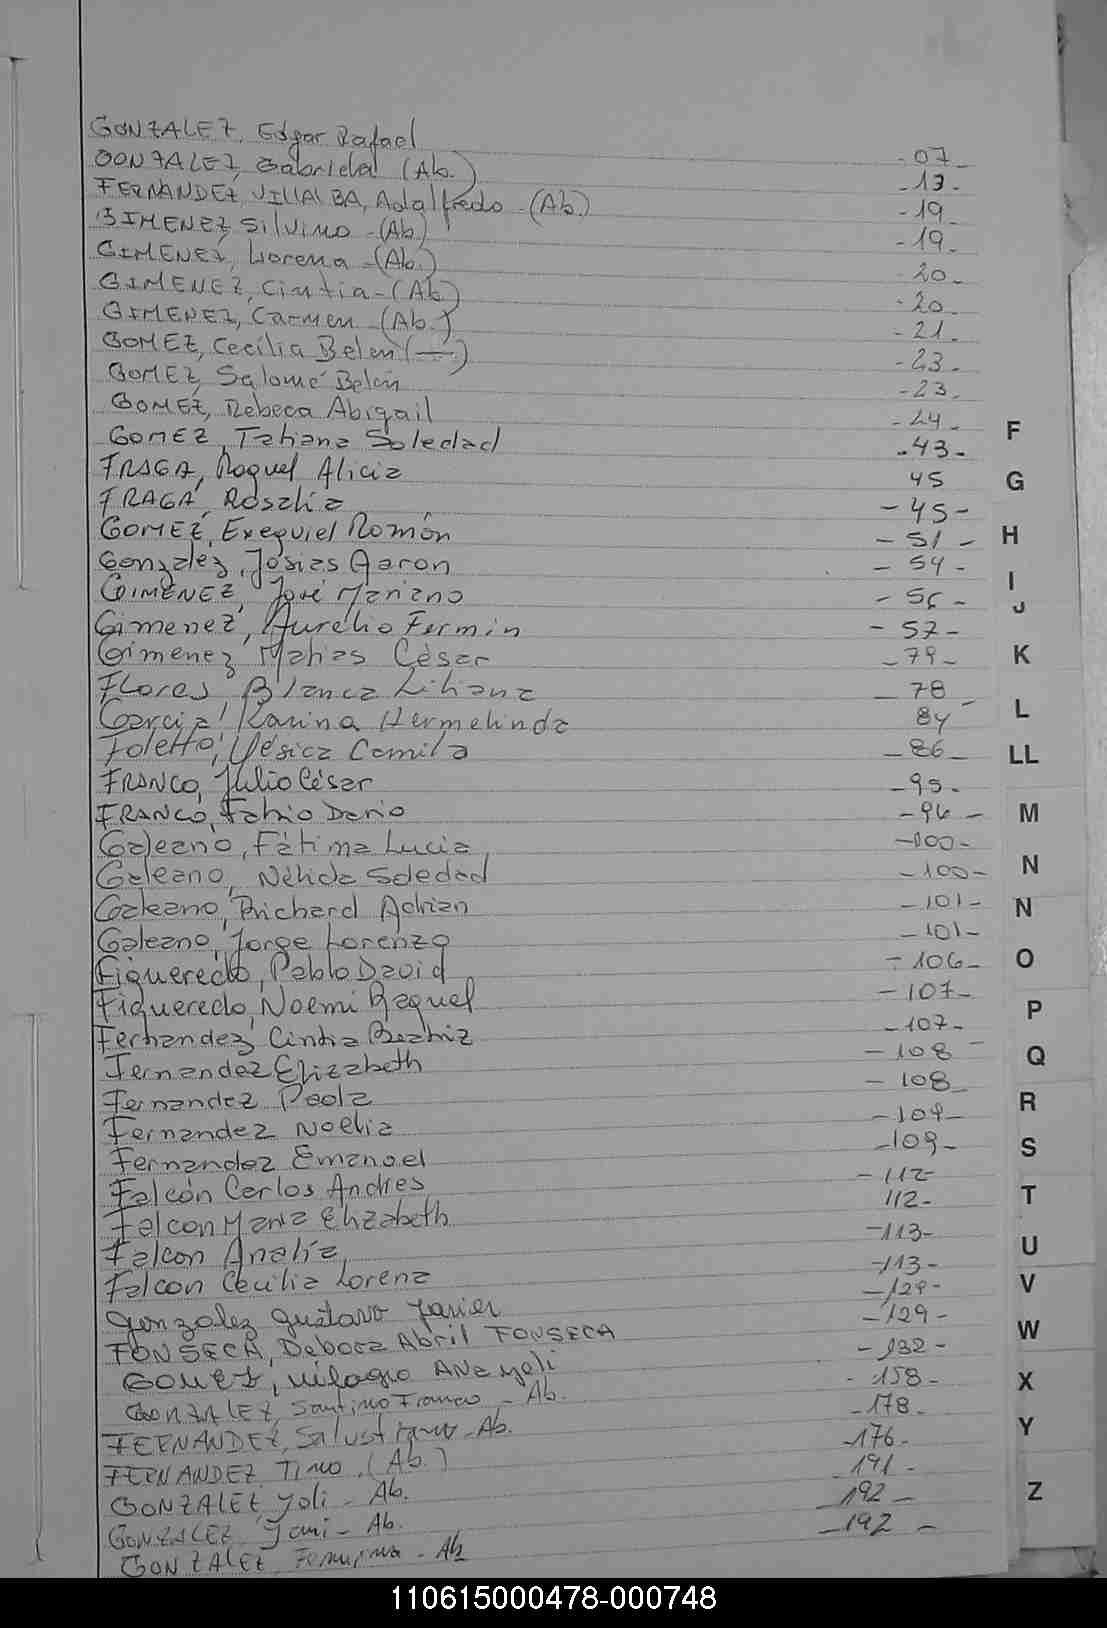 GONZALEZ, Edgar Rafael - 07 -
GONZALEZ, Gabriela (Ab.) - 13 -
FERNANDEZ VILLALBA, Adalfredo - (Ab.) - 19 -
GIMENEZ, Silvino - (Ab.) - 19 -
GIMENEZ, Lorena - (Ab.) - 20 -
GIMENEZ, Cintia - (Ab.) - 20 -
GIMENEZ, Carmen - (Ab.) - 21 -
GOMEZ, Cecilia Belen (—) - 23 -
GOMEZ, Salomé Belén - 23 -
GOMEZ, Rebeca Abigail - 24 -
GOMEZ, Tatiana Soledad - 43 -
FRAGA, Raquel Alicia 45
FRAGA, Rosalia - 45 -
GOMEZ, Exequiel Román - 51 -
Gonzalez, Josias Aaron - 54 -
GIMENEZ, José Mariano - 56 -
Gimenez, Aurelio Fermin - 57 -
Gimenez Matias César - 79 -
Flores Blanca Liliana - 78
Garcia, Karina Hermelinda 84 -
Foletto, Yésica Camila - 86 -
FRANCO, Julio César - 95 -
FRANCO, Fabio Dario - 96 -
Galeano, Fátima Lucia - 100 -
Galeano, Nélida Soledad - 100 -
Galeano, Richard Adrian - 101 -
Galeano, Jorge Lorenzo - 101 -
Figueredo, Pablo David - 106 -
Figueredo, Noemi Raquel - 107 -
Fernandez Cintia Beatriz - 107 -
Fernandez Elizabeth - 108 -
Fernandez Paola - 108
Fernandez Noelia - 109 -
Fernandez Emanoel - 109 -
Falcón Carlos Andres - 112 -
Falcon Maria Elizabeth 112 -
Falcon Analía - 113 -
Falcon Cecilia Lorena - 113 -
Gonzalez Gustavo Javier - 129 -
FONSECA, Debora Abril FONSECA - 129 -
GOMEZ, Milagro - 132 -
GONZALEZ, Santino Franco - Ab. - 158 -
FERNANDEZ, - Ab. - 178 -
FERNANDEZ Timo (Ab.) - 176 -
GONZALEZ, Yoli - Ab. - 191 -
GONZALEZ, Yami - Ab. - 192 -
GONZALEZ, - Ab - 192 -
F
G
H
I
J
K
L
LL
M
N
N
O
P
Q
R
S
T
U
V
W
X
Y
Z
110615000478-000748